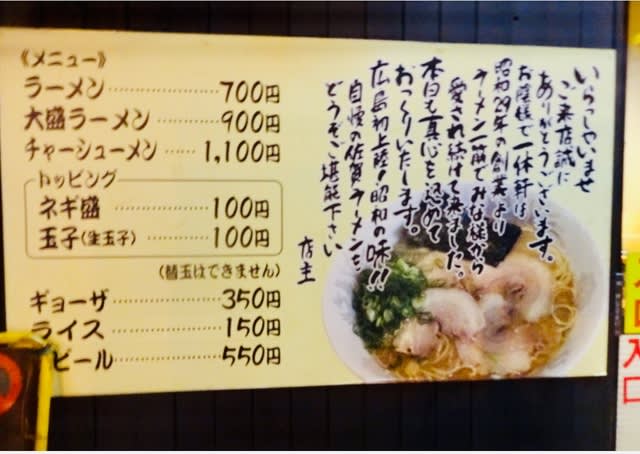 《メニュー》
ラーメン 700円
大盛ラーメン 900円
チャーシューメン 1,100円
トッピング
ネギ盛 100円
玉子(生玉子) 100円
(替玉はできません)
ギョーザ 350円
ライス 150円
ビール 550円
いらっしゃいませ
ご来店誠に
ありがとうございます。
お陰様で一休軒は
昭和29年の創業より
ラーメン一筋でみな様から
愛され続けて来ました。
本日も真心を込めて
おつくりいたします。
広島初上陸!昭和の味!!
自慢の佐賀ラーメンを
どうぞご堪能下さい
店主
入
口